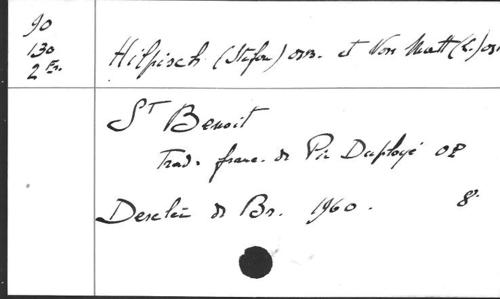 90
130
2 Ex.
Hilpisch (Stefan) OSB. et Von Matt (L.)
St Benoit
Trad. franc. de Pie Duployé OP
Desclée de Br. 1960. 8°